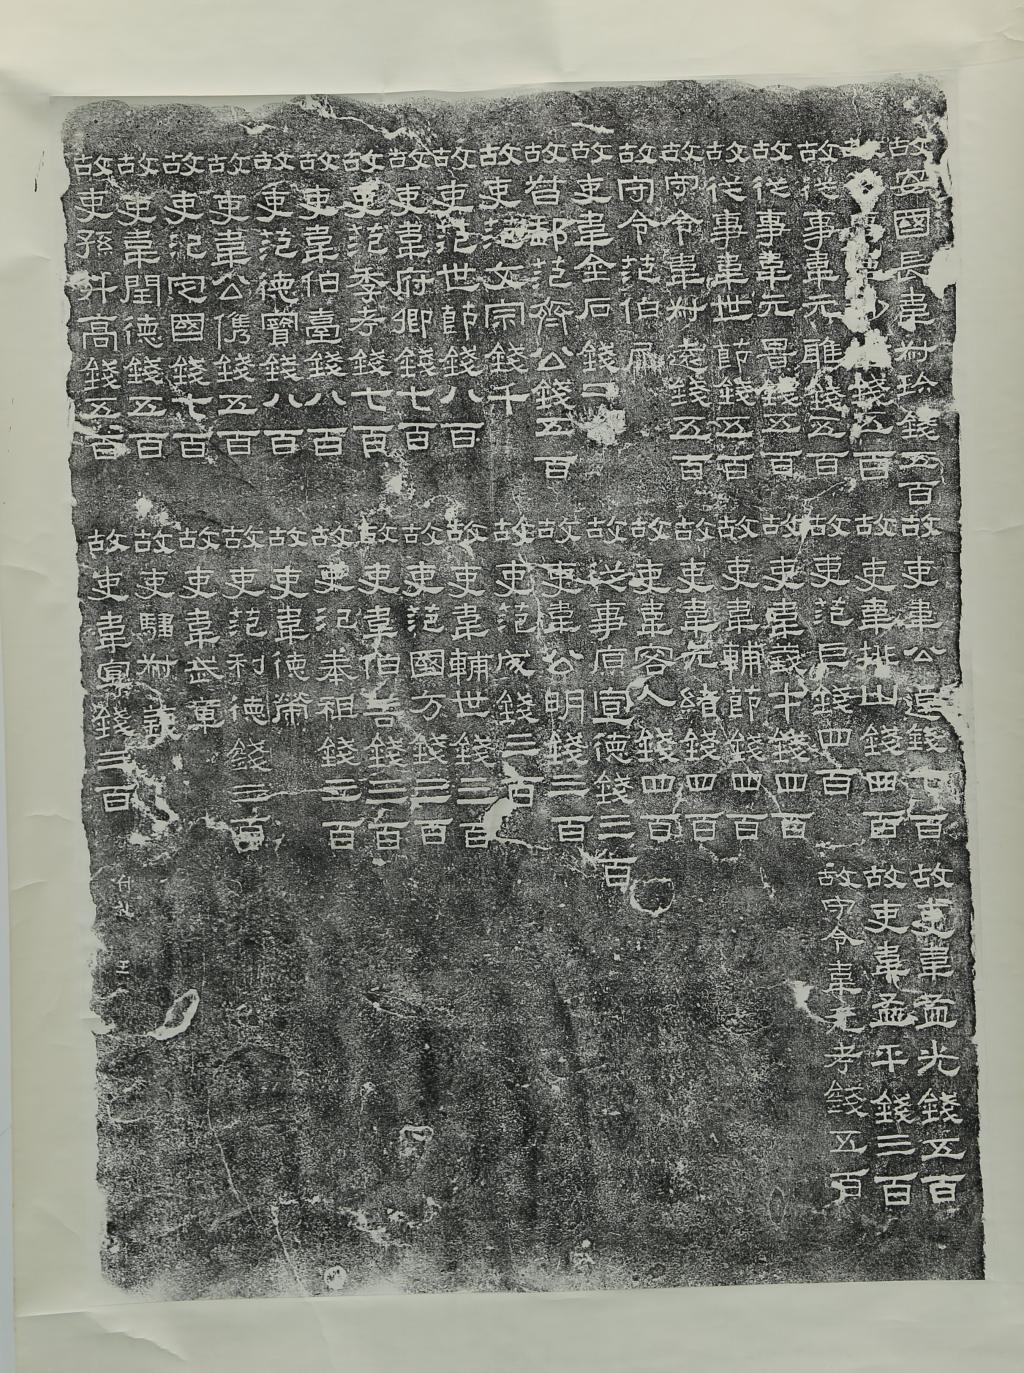 故安國長韋叔珍錢五百
故從事韋錢五百
故從事韋元雅錢五百
故從事韋元景錢五百
故從事韋世節錢五百
故守令韋叔遠錢五百
故守令范伯犀
故吏韋金石錢二
故督郵范齊公錢五百
故吏范文宗錢千
故吏范世節錢八百
故吏韋府卿錢七百
故吏范季考錢七百
故吏韋伯臺錢八百
故吏范德寶錢八百
故吏韋公儁錢五百
故吏氾定國錢七百
故吏韋閏德錢五百
故吏孫升高錢五百
故吏韋公逴錢七百
故吏韋排山錢四百
故吏范巨錢四百
故吏韋義才錢四百
故吏韋輔節錢四百
故吏韋元緒錢四百
故吏韋容人錢四百
故從事原宣德錢三百
故吏韋公明錢三百
故吏范成錢三百
故吏韋輔世錢三百
故吏范國方錢三百
故吏韋伯善錢三百
故吏氾奉祖錢三百
故吏韋德榮
故吏范利德錢三百
故吏韋武章
故吏騶叔
故吏韋宣錢三百
故吏韋孟光錢五百
故吏韋孟平錢三百
故守令韋元考錢五百